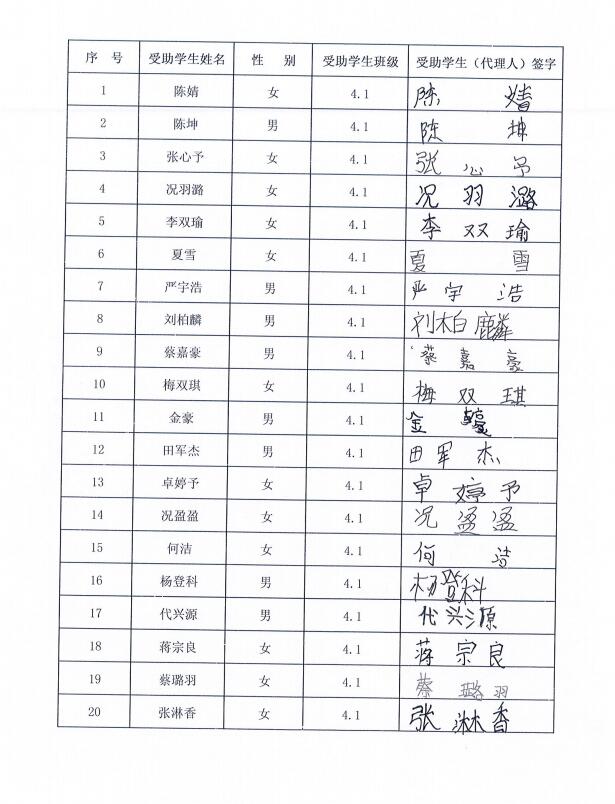 序 号 受助学生姓名 性 别 受助学生班级 受助学生（代理人）签字
1 陈婧 女 4.1 陈婧
2 陈坤 男 4.1 陈坤
3 张心予 女 4.1 张心予
4 况羽潞 女 4.1 况羽潞
5 李双瑜 女 4.1 李双瑜
6 夏雪 女 4.1 夏雪
7 严宇浩 男 4.1 严宇浩
8 刘柏麟 男 4.1 刘柏麟
9 蔡嘉豪 男 4.1 蔡嘉豪
10 梅双琪 女 4.1 梅双琪
11 金豪 男 4.1 金豪
12 田军杰 男 4.1 田军杰
13 卓婷予 女 4.1 卓婷予
14 况盈盈 女 4.1 况盈盈
15 何洁 女 4.1 何洁
16 杨登科 男 4.1 杨登科
17 代兴源 男 4.1 代兴源
18 蒋宗良 女 4.1 蒋宗良
19 蔡璐羽 女 4.1 蔡璐羽
20 张淋香 女 4.1 张淋香